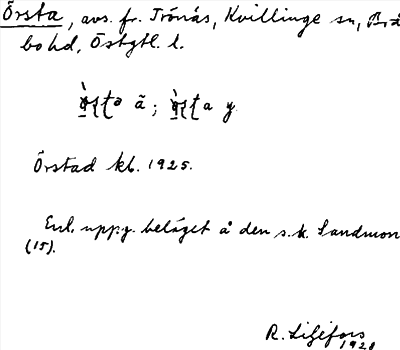 Örsta, avs. fr. Trönäs, Kvillinge sn, Brå
bo hd, Östgtl. l.
ã ; y
Örstad kb. 1925.
Enl. uppg. beläget å den s.k. Sandmon
(15).
R. Liljefors
1928